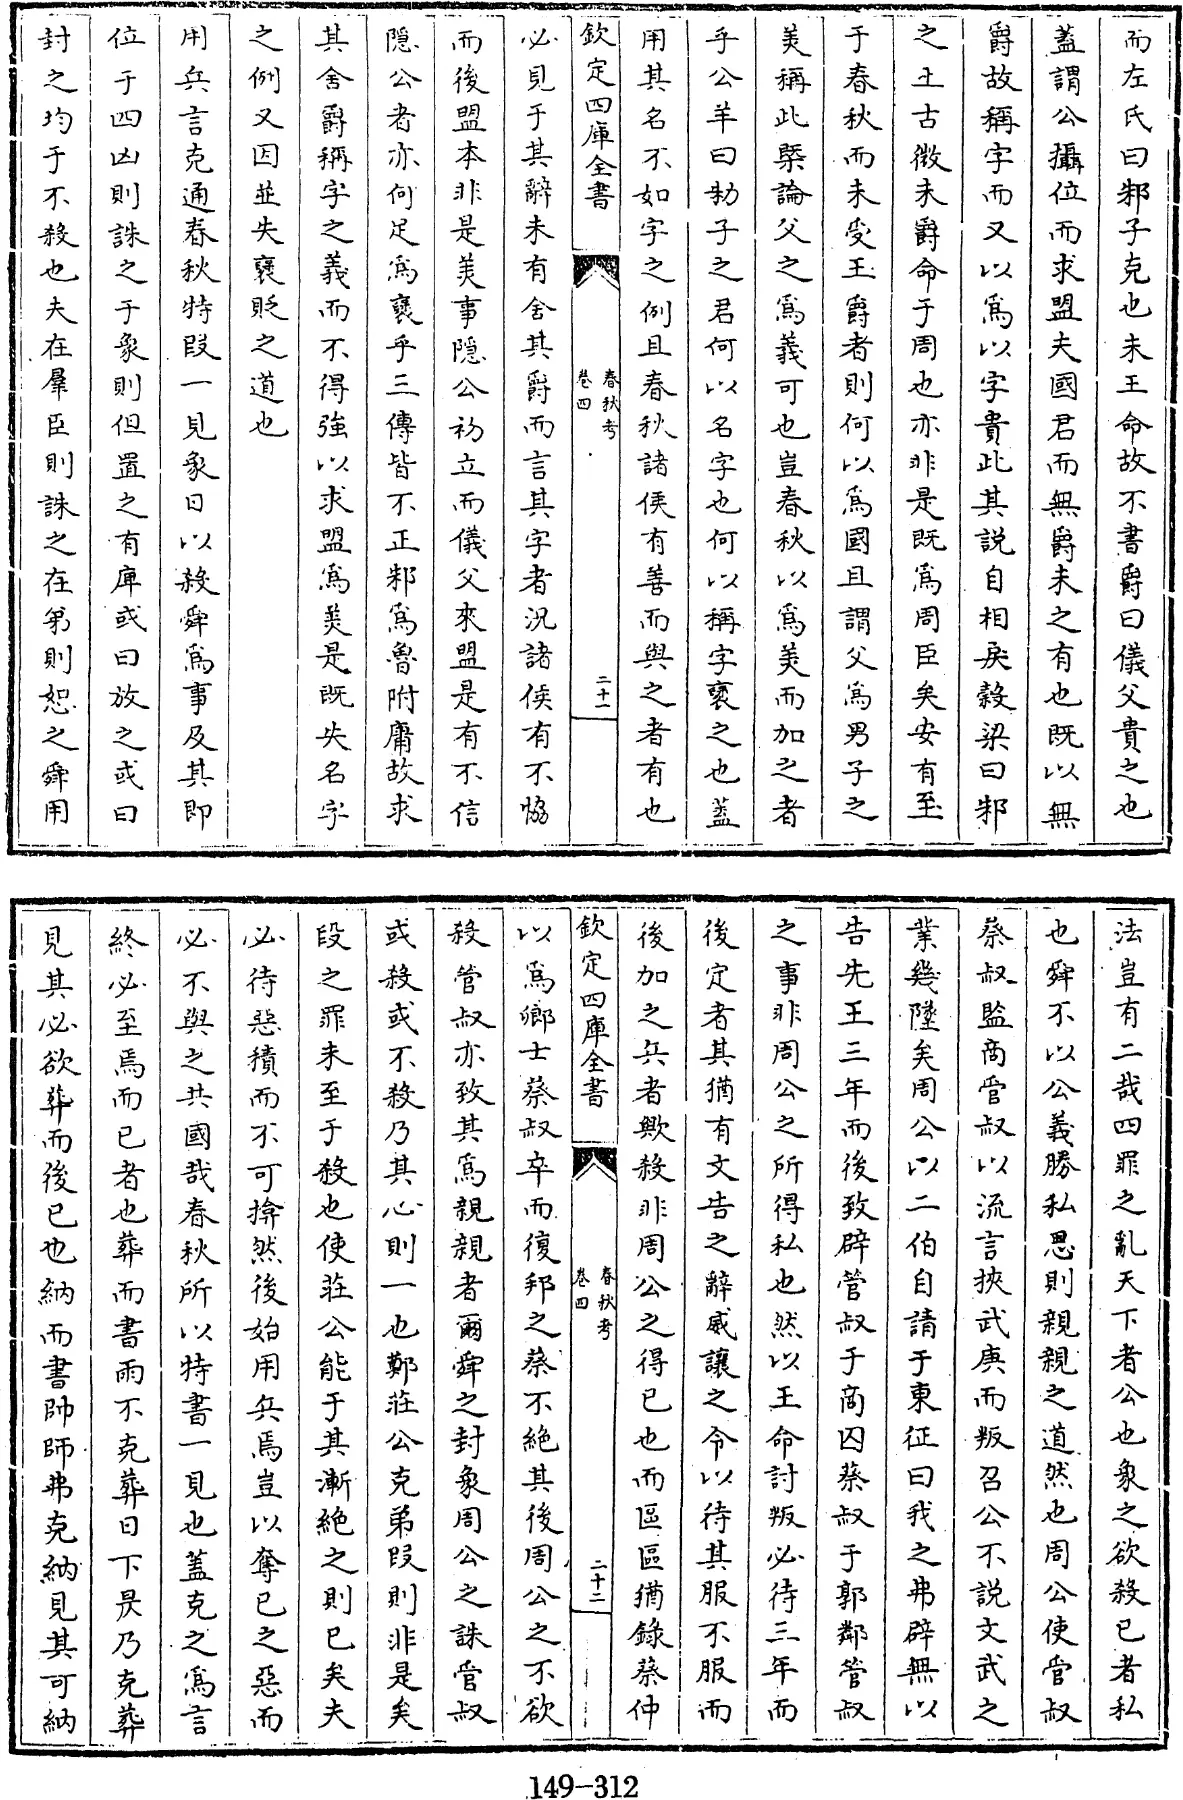 而左氏曰邾子克也未王命故不書爵曰儀父貴之也
蓋謂公攝位而求盟夫國君而無爵未之有也既以無
爵故稱字而又以爲以字貴此其説自相戾榖梁曰邾
之上古微未爵命于周也亦非是既爲周臣矣安有至
于春秋而未受王爵者則何以爲國且謂父爲男子之
美稱此槩論父之爲義可也豈春秋以爲美而加之者
乎公羊曰邾子之君何以名字也何以稱字襃之也蓋
用其名不如字之例且春秋諸侯有善而與之者有也
欽定四庫全書
春秋考
卷四
二十一
必見于其辭未有舍其爵而言其字者况諸侯有不恊
而後盟本非是美事隠公初立而儀父來盟是有不信
隠公者亦何足爲襃乎三傳皆不正邾爲魯附庸故求
其舍爵稱字之義而不得強以求盟爲美是既失名字
之例又因並失襃貶之道也
用兵言克通春秋特段一見象日以殺舜爲事及其即
位于四凶則誅之于象則但置之有庳或曰放之或曰
封之均于不殺也夫在羣臣則誅之在弟則恕之舜用
法豈有二哉四罪之亂天下者公也象之欲殺已者私
也舜不以公義勝私恩則親親之道然也周公使管叔
蔡叔監商管叔以流言挾武庚而叛召公不説文武之
業幾墜矣周公以二伯自請于東征曰我之弗辟無以
告先王三年而後致辟管叔于商囚蔡叔于郭鄰管叔
之事非周公之所得私也然以王命討叛必待三年而
後定者其猶有文告之辭威讓之令以待其服不服而
後加之兵者歟殺非周公之得已也而區區猶錄蔡仲
欽定四庫全書
春秋考
卷四
二十二
以爲鄉士蔡叔卒而復邦之蔡不絶其後周公之不欲
殺管叔亦致其爲親親者爾舜之封象周公之誅管叔
或殺或不殺乃其心則一也鄭莊公克弟段則非是矣
段之罪未至于殺也使莊公能于其漸絶之則已矣夫
必待惡積而不可揜然後始用兵焉豈以奪已之惡而
必不與之共國哉春秋所以特書一見也蓋克之爲言
終必至焉而已者也葬而書雨不克葬日下昃乃克葬
見其必欲葬而後已也納而書帥師弗克納見其可納
149-312